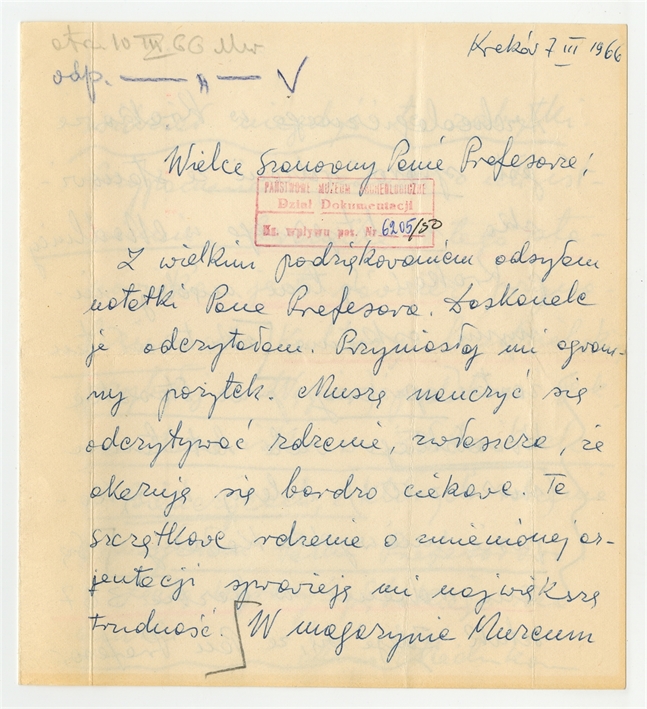 otrz. 10 III 66 Mw
odp. — „ — V
Kraków 7 III 1966
Wielce Szanowny Panie Profesorze!
PAŃSTWOWE MUZEUM ARCHEOLOGICZNE
Dział Dokumentacji
Ks. wpływu poz. Nr. 6205/50
Z wielkim podziękowaniem odsyłam
notatki Pana Profesora. Doskonale
je odczytałam. Przyniosły mi ogrom-
ny pożytek. Muszę nauczyć się
odczytywać rdzenie, zwłaszcza, że
okazują się bardzo ciekawe. Te
szczątkowe rdzenie o zmienionej or-
jentacji sprawiają mi największą
trudność. W magazynie Muzeum